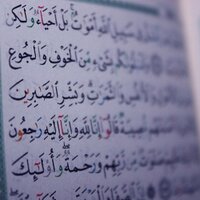 سَبِيلِ ٱللَّهِ أَمْوَٰتٌۢ ۚ بَلْ أَحْيَآءٌ وَلَٰكِن
بِشَىْءٍ مِّنَ ٱلْخَوْفِ وَٱلْجُوعِ
وَٱلْأَنفُسِ وَٱلثَّمَرَٰتِ ۗ وَبَشِّرِ ٱلصَّٰبِرِينَ
مُّصِيبَةٌ قَالُوٓا۟ إِنَّا لِلَّهِ وَإِنَّآ إِلَيْهِ رَٰجِعُونَ
رَّبِّهِمْ وَرَحْمَةٌ ۖ وَأُو۟لَٰٓئِكَ